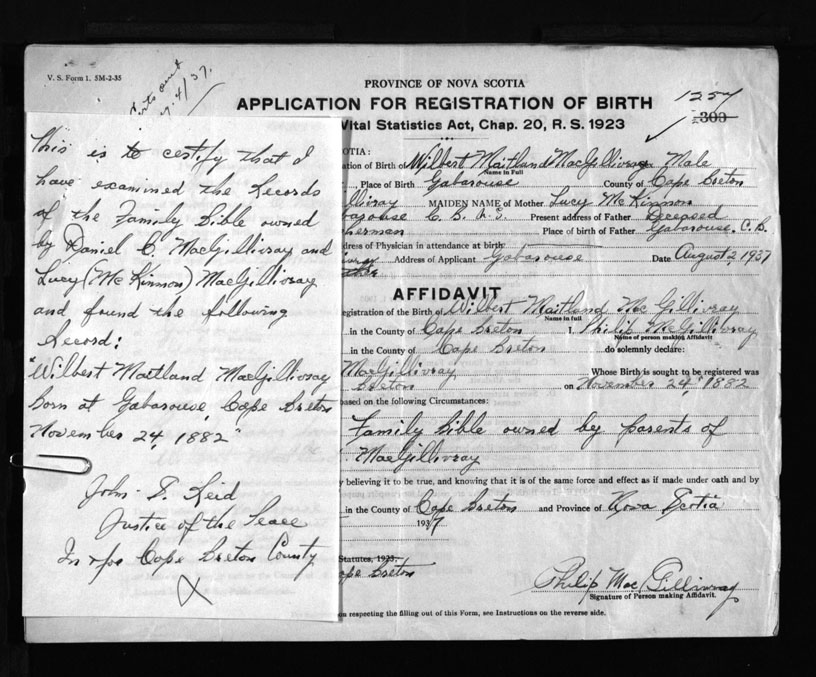 V. S. Form 1. 5M-2-35
4/37.
PROVINCE OF NOVA SCOTIA
APPLICATION FOR REGISTRATION OF BIRTH
1257
300
Vital Statistics Act, Chap. 20, R. S. 1923
This is to certify that I
have examined the Records
of the Family Bible owned
by Daniel C. MacGillivray and
Lucy (McKinnon) MacGillivray
and found the following
Record:
"Wilbert Maitland MacGillivray
Born at Gabarouse Cape Breton
November 24, 1882"
John T. Reid
Justice of the Peace
In & for Cape Breton County
X
OTIA:
ation of Birth of Wilbert Maitland MacGillivray Male
Name in Full
Place of Birth Gabarouse County of Cape Breton
llivray MAIDEN NAME of Mother. Lucy McKinnon
barouse C. B. N. S. Present address of Father Deceased
herman Place of birth of Father Gabarouse, C. B.
dress of Physician in attendance at birth
Address of Applicant Gabarouse Date August 2, 1937
AFFIDAVIT
egistration of the Birth of Wilbert Maitland MacGillivray
Name in full
in the County of Cape Breton I, Philip McGillivray
Name of person making Affidavit
in the County of Cape Breton do solemnly declare:
MacGillivray Whose Birth is sought to be registered was
Breton on November 24, 1882
based on the following Circumstances:
Family Bible owned by parents of
MacGillivray
y believing it to be true, and knowing that it is of the same force and effect as if made under oath and by
in the County of Cape Breton and Province of Nova Scotia
1937
Statutes, 1923
ape Breton
Philip MacGillivray
Signature of Person making Affidavit.
n respecting the filling out of this Form, see Instructions on the reverse side.